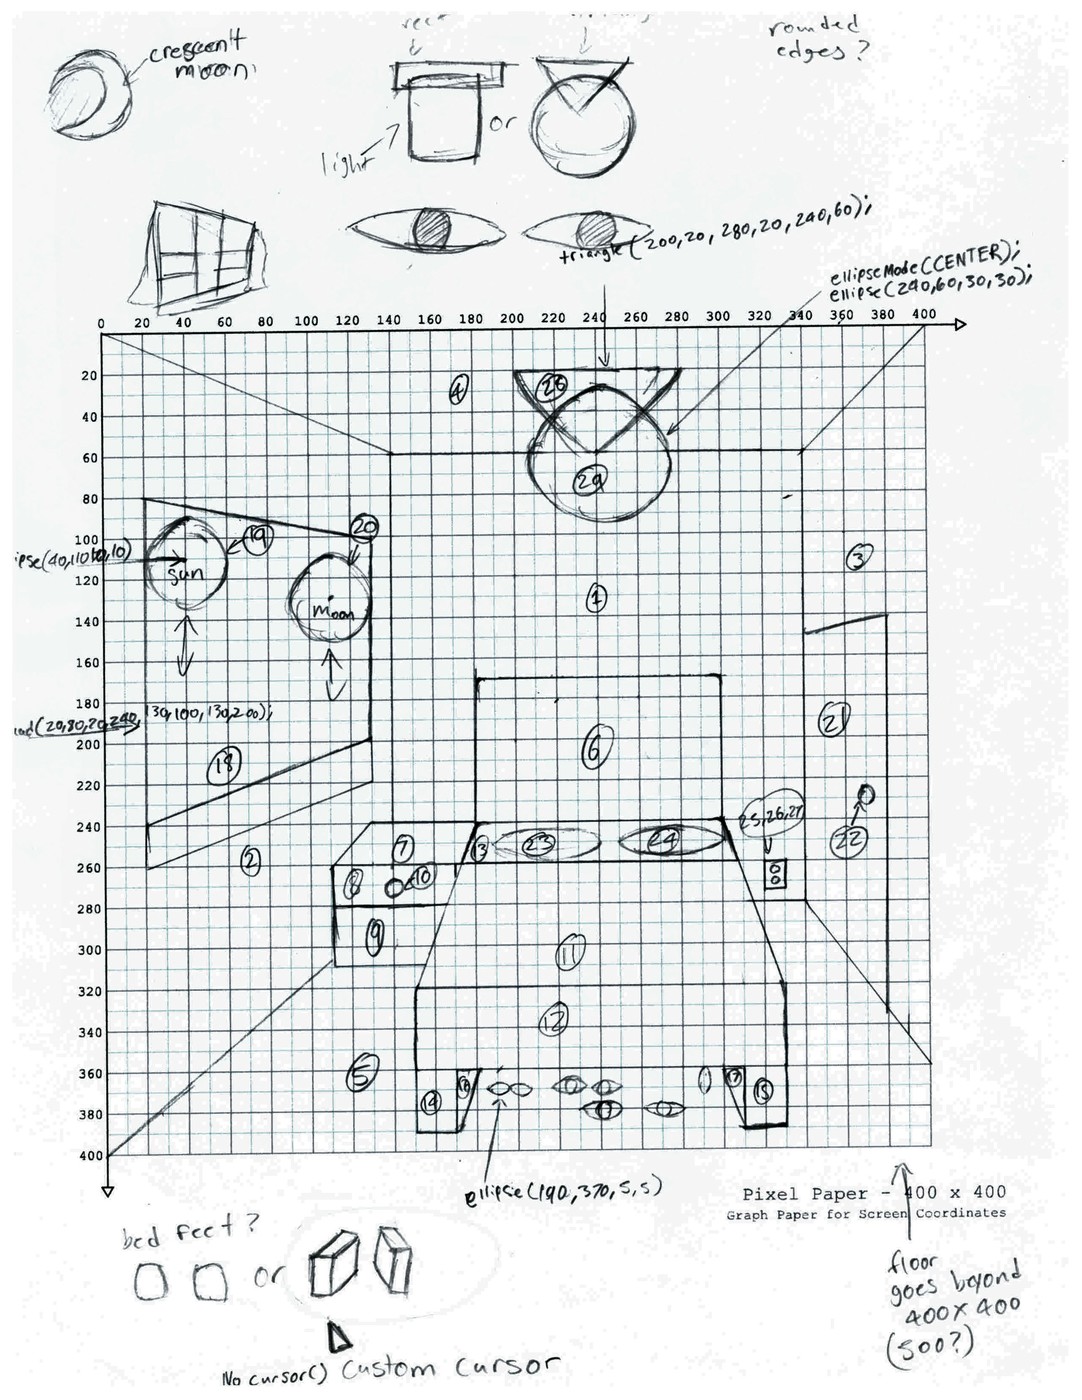 crescent
moon
rounded
edges?
or
light
triangle(200,20, 280,20, 240,60);
ellipseMode(CENTER);
ellipse(240,60,30,30);
0 20 40 60 80 100 120 140 160 180 200 220 240 260 280 300 320 340 360 380 400
20
4
28
40
60
29
80
100
19
20
3
120
sun
1
moon
140
160
180
130,100,130,200);
21
200
6
18
220
25,26,27
240
7
13
23
24
22
260
2
8
10
280
9
11
300
320
12
340
360
5
16
17
14
15
380
400
ellipse(190,370,5,5)
Pixel Paper - 400 x 400
Graph Paper for Screen Coordinates
bed feet?
or
floor
goes beyond
400x400
(500?)
No cursor() custom cursor